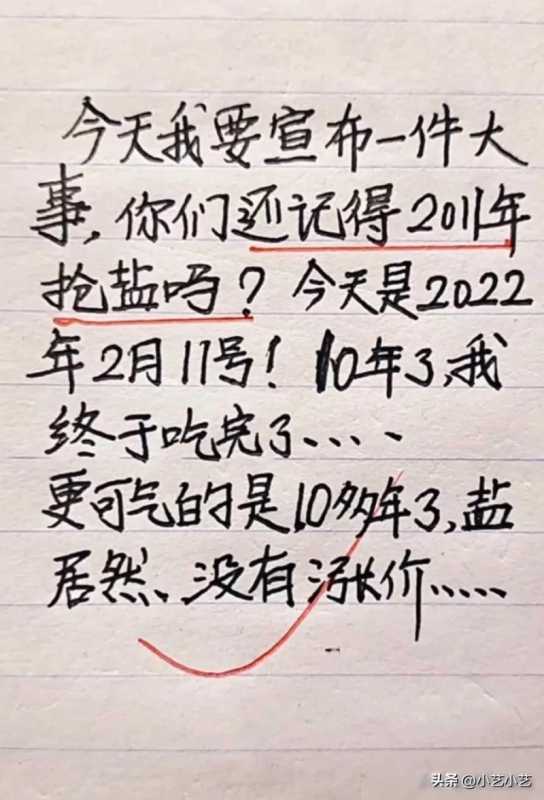 今天我要宣布一件大
事,你们还记得2011年
抢盐吗?今天是2022
年2月11号!10年了,我
终于吃完了、、、、
更可气的是,10多年了,盐
居然、没有涨价、、、、、
头条 @小艺小艺